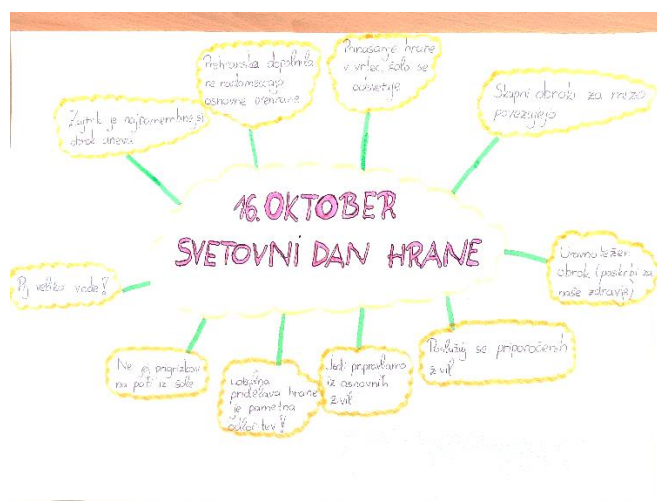 16. OKTOBER
SVETOVNI DAN HRANE
Zajtrk je najpomembnejši
obrok dneva
Prehranska dopolnila
ne nadomeščajo
osnovne prehrane
Prinašanje hrane
v vrtec, šolo se
odsvetuje
Skupni obroki za mizo
povezujejo
Uravnotežen
obrok (poskrbi za
naše zdravje)
Poslužuj se priporočenih
živil
Jedi pripravljamo
iz osnovnih
živil
Lokalna
pridelava hrane
je pametna
odločitev!
Ne jej prigrizkov
na poti iz šole
Pij veliko vode!